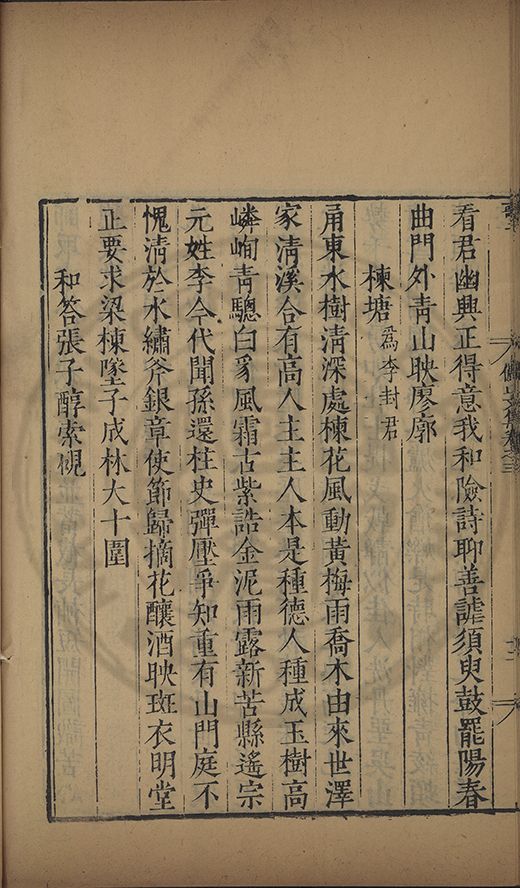 看君幽興正得意我和險詩聊善謔須臾鼓罷陽春
曲門外青山映廖廓
楝塘為李封君
甬東水樹清深處楝花風動黃梅雨喬木由來世澤
家清溪合有高人主主人本是種德人種成玉樹高
嶙峋青驄白豸風霜古紫誥金泥雨露新苦縣遙宗
元姓李今代聞孫還柱史彈壓爭知重有山門庭不
愧清於水繡斧銀章使節歸摘花釀酒映斑衣明堂
正要求梁棟墜子成林大十圍
和答張子醇索硯